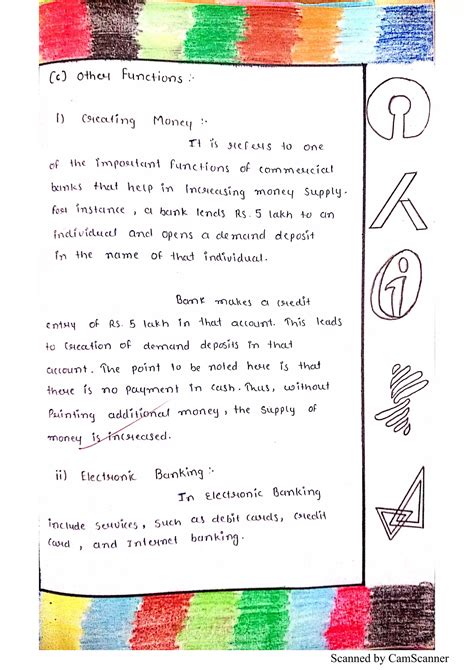 (c) Other Functions :-
I) Creating Money :-
It is refers to one
of the important functions of commercial
banks that help in Increasing money supply.
for instance, a bank lends Rs. 5 lakh to an
individual and opens a demand deposit
in the name of that individual.
Bank makes a credit
entry of Rs. 5 lakh in that account. This leads
to creation of demand deposits in that
account. The point to be noted here is that
there is no payment in cash. Thus, without
Printing additional money, the supply of
money is increased.
ii) Electronic Banking :-
In Electronic Banking
include services, such as debit cards, credit
card, and Internet banking.
Scanned by CamScanner